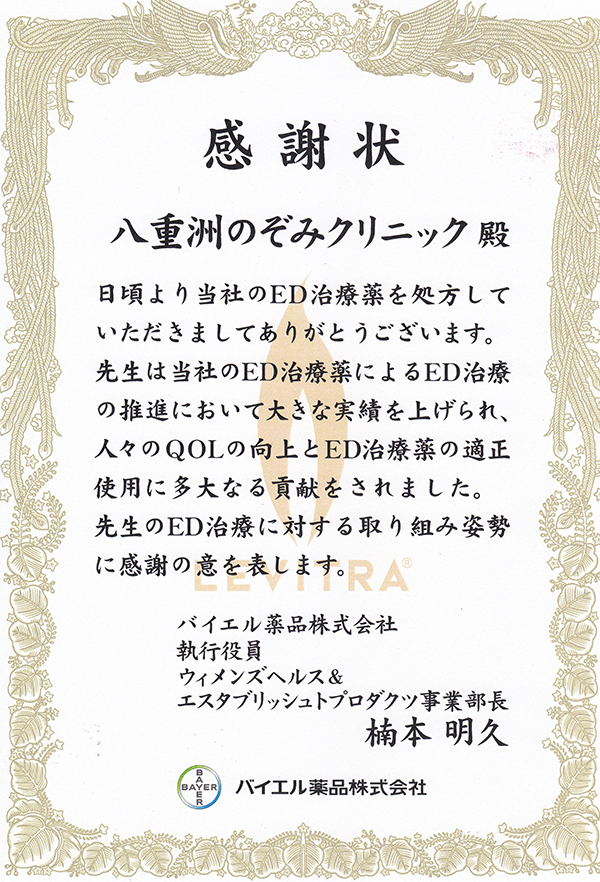 感謝状
八重洲のぞみクリニック 殿
日頃より当社のED治療薬を処方して
いただきましてありがとうございます。
先生は当社のED治療薬によるED治療
の推進において大きな実績を上げられ、
人々のQOLの向上とED治療薬の適正
使用に多大なる貢献をされました。
先生のED治療に対する取り組み姿勢
に感謝の意を表します。
LEVITRA®
バイエル薬品株式会社
執行役員
ウィメンズヘルス&
エスタブリッシュトプロダクツ事業部長
楠本 明久
BAYER
BAYER
バイエル薬品株式会社